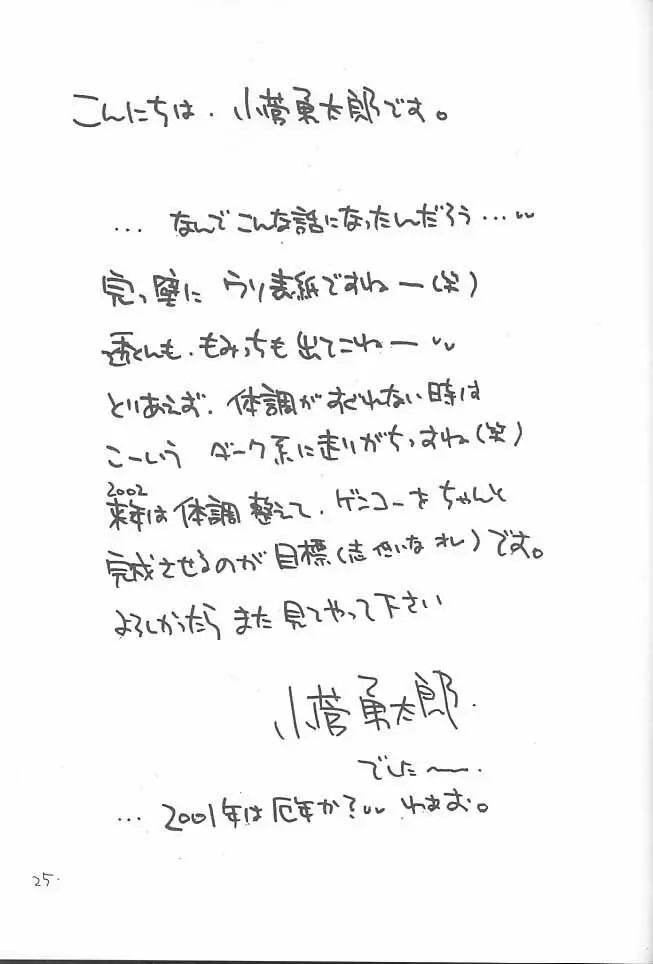 こんにちは、小菅勇太郎です。
… なんでこんな話になったんだろう…
完っ璧に ウソ表紙ですねー(笑)
透くんも、もみっちも出てこねー
とりあえず、体調がすぐれない時は
こーいう ダーク系に走りがちっすね(笑)
2002
来年は体調整えて、ゲンコーをちゃんと
完成させるのが目標(志低いなオレ)です。
よろしかったらまた見てやって下さい
小菅勇太郎.
でした〜.
… 2001年は厄年か? わぁお。
25.